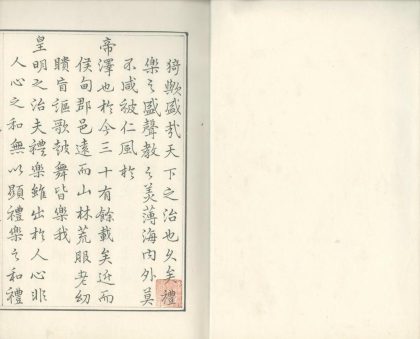 猗歟盛哉天下之治也久矣禮
樂之盛聲教之美薄海內外莫
不咸被仁風於
帝澤也於今三十有餘載矣近而
侯甸郡邑遠而山林荒服老幼
聵盲謳歌鼓舞皆樂我
皇明之治夫禮樂雖出於人心非
人心之和無以顯禮樂之和禮